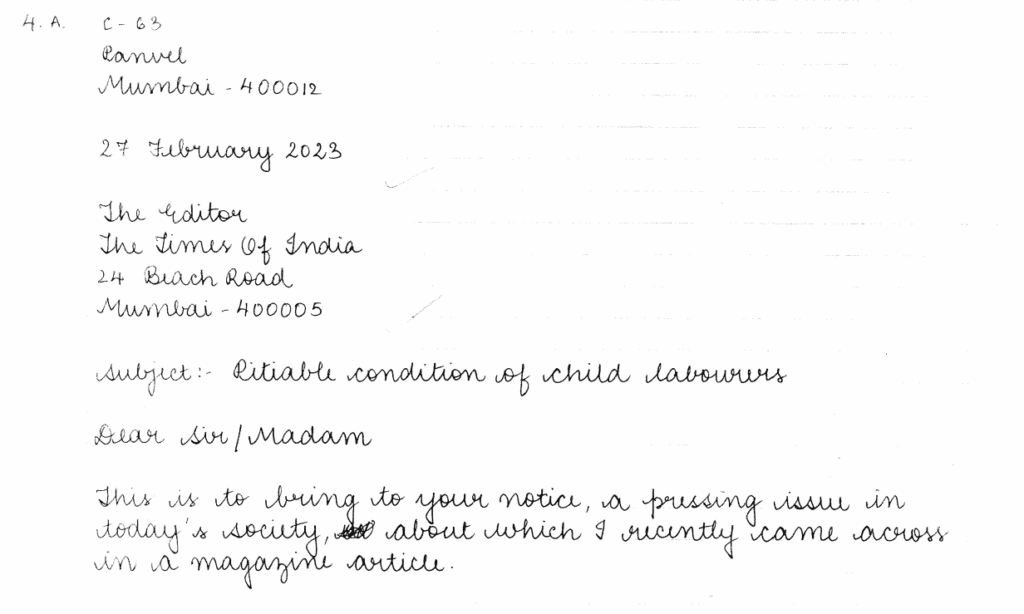 4. A. C - 63
Panvel
Mumbai - 400012
27 February 2023
The Editor
The Times Of India
24 Beach Road
Mumbai - 400005
Subject:- Pitiable condition of child labourers
Dear Sir/Madam
This is to bring to your notice, a pressing issue in
today's society, about which I recently came across
in a magazine article.